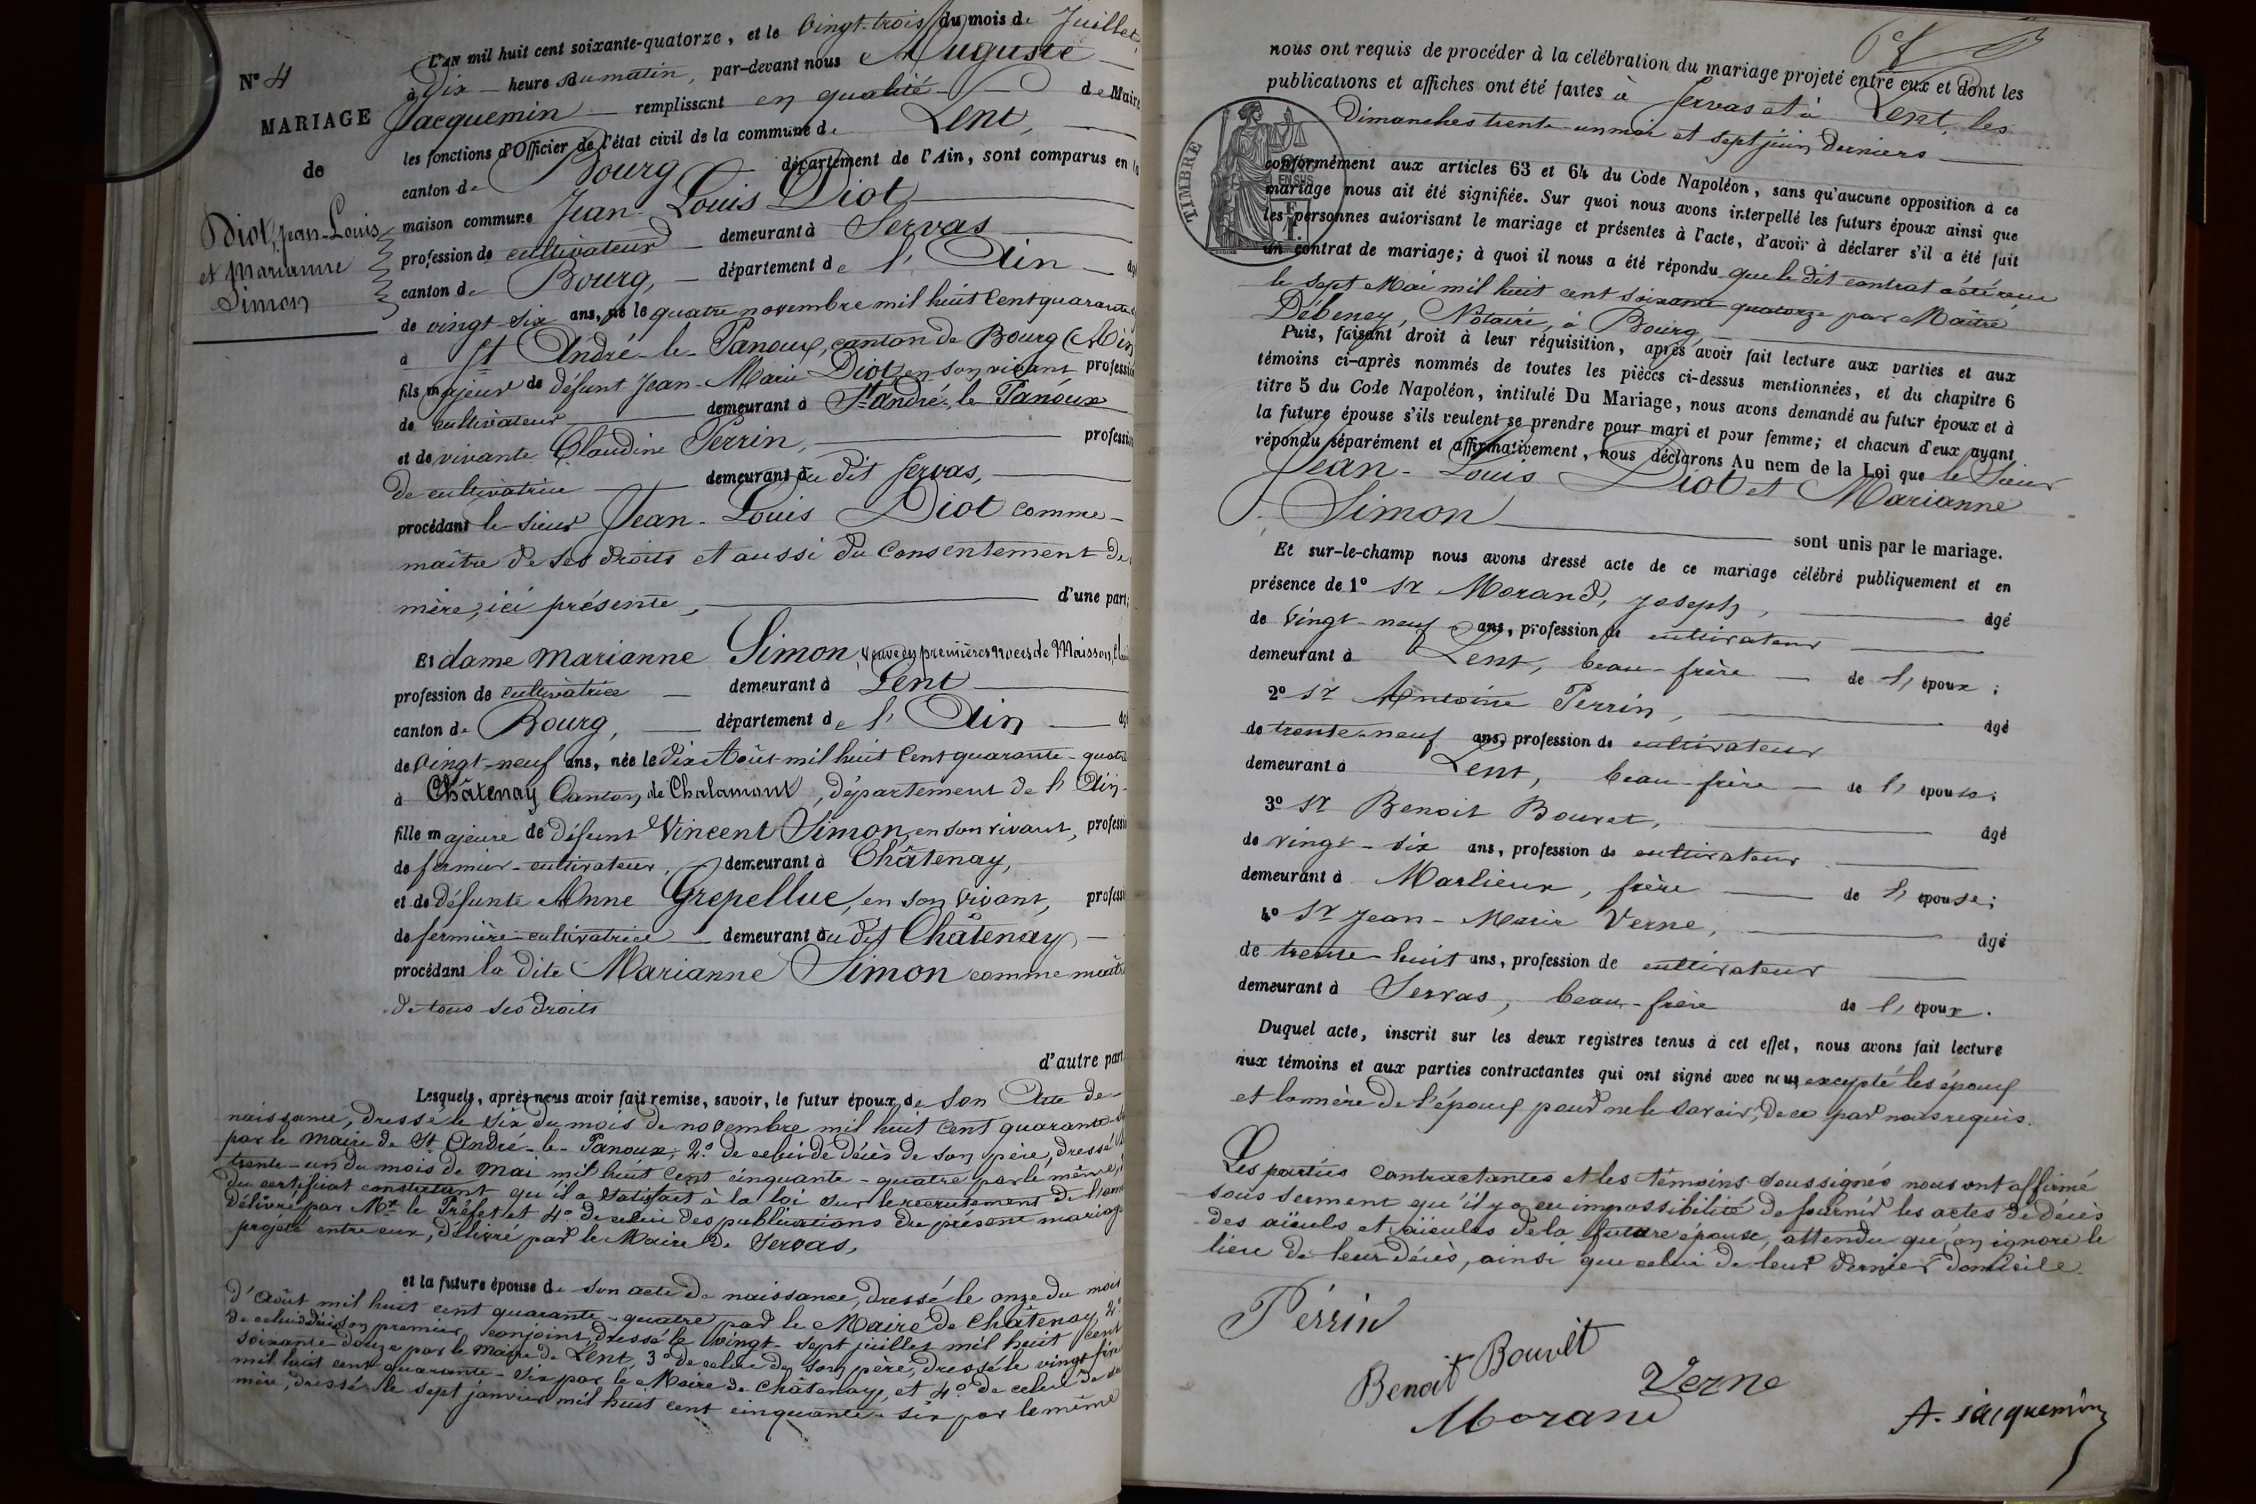 N° 4
MARIAGE
de
Diot, Jean-Louis
et Marianne
Simon
L'AN mil huit cent soixante-quatorze, et le vingt-trois du mois de Juillet,
à Dix heures du matin, par-devant nous Auguste
Jacquemin remplissant en qualité de Maire
les fonctions d'Officier de l'état civil de la commune de Lent,
canton de Bourg département de l'Ain, sont comparus en la
maison commune Jean-Louis Diot
profession de cultivateur demeurant à Servas
canton de Bourg, département de l'Ain
de vingt-six ans, né le quatre novembre mil huit cent quarante
à St André-le-Panoux, canton de Bourg (Ain
fils majeur de défunt Jean-Marie Diot, en son vivant, profession
de cultivateur demeurant à St André-le-Panoux
et de vivante Claudine Perrin, profession
de cultivatrice demeurant au dit Servas,
procédant le sieur Jean-Louis Diot comme
maître de ses droits et aussi du consentement de
mère, ici présente, d'une part;
Et dame Marianne Simon, veuve en premières noces de
profession de cultivatrice demeurant à Lent
canton de Bourg, département de l'Ain
de vingt-neuf ans, née le dix Août mil huit cent quarante-quatre
à Châtenay Canton de Chalamont, département de l'Ain
fille majeure de défunt Vincent Simon, en son vivant, profession
de fermier-cultivateur, demeurant à Châtenay,
et de défunte Anne Grepelluc, en son vivant, profession
de fermière-cultivatrice demeurant au dit Châtenay
procédant la dite Marianne Simon comme maître
de tous ses droits
d'autre part
Lesquels, après nous avoir fait remise, savoir, le futur époux, de son Acte de
naissance, dressé le six du mois de novembre mil huit cent quarante-
par le Maire de St André-le-Panoux, 2° de celui de décès de son père, dressé
trente-un du mois de Mai mil huit cent cinquante-quatre par le même,
du certificat constatant qu'il a satisfait à la loi sur le recrutement de l'armée
délivré par Mr le Préfet et 4° de celui des publications du présent mariage
projeté entre eux, délivré par le Maire de Servas,
et la future épouse de son acte de naissance, dressé le onze du mois
d'Août mil huit cent quarante-quatre par le Maire de Châtenay, 2°
de celui de décès de son premier conjoint, dressé le vingt-sept juillet mil huit cent
soixante-douze par le Maire de Lent, 3° de celui de son père, dressé le vingt
mil huit cent quarante-six par le Maire de Châtenay, et 4° de celui de sa
mère, dressé le sept janvier mil huit cent cinquante-six par le même
nous ont requis de procéder à la célébration du mariage projeté entre eux et dont les
publications et affiches ont été faites à Servas et à Lent, les
Dimanches trente-un mai et sept juin derniers
TIMBRE
conformément aux articles 63 et 64 du Code Napoléon, sans qu'aucune opposition à ce
mariage nous ait été signifiée. Sur quoi nous avons interpellé les futurs époux ainsi que
les personnes autorisant le mariage et présentes à l'acte, d'avoir à déclarer s'il a été fait
un contrat de mariage; à quoi il nous a été répondu que le dit contrat a été reçu
le sept Mai mil huit cent soixante quatorze par Maître
Débeney, Notaire, à Bourg,
Puis, faisant droit à leur réquisition, après avoir fait lecture aux parties et aux
témoins ci-après nommés de toutes les pièces ci-dessus mentionnées, et du chapitre 6
titre 5 du Code Napoléon, intitulé Du Mariage, nous avons demandé au futur époux et à
la future épouse s'ils veulent se prendre pour mari et pour femme; et chacun d'eux ayant
répondu séparément et affirmativement, nous déclarons Au nom de la Loi que le Sieur
Jean-Louis Diot et Marianne
Simon
sont unis par le mariage.
Et sur-le-champ nous avons dressé acte de ce mariage célébré publiquement et en
présence de 1° Sr Morand, Joseph, âgé
de vingt-neuf ans, profession de cultivateur
demeurant à Lent, beau-frère de l'époux;
2° Sr Antoine Perrin, âgé
de trente-neuf ans, profession de cultivateur
demeurant à Lent, beau-frère de l'épouse;
3° Sr Benoit Bouvet, âgé
de vingt-six ans, profession de cultivateur
demeurant à Marlieux, frère de l'épouse;
4° Sr Jean-Marie Verne, âgé
de trente-huit ans, profession de cultivateur
demeurant à Servas, beau-frère de l'époux.
Duquel acte, inscrit sur les deux registres tenus à cet effet, nous avons fait lecture
aux témoins et aux parties contractantes qui ont signé avec nous, excepté les époux
et la mère de l'époux pour ne le savoir, de ce par nous requis.
Les parties contractantes et les témoins soussignés nous ont affirmé
sous serment qu'il y a eu impossibilité de fournir les actes de décès
des aïeuls et aïeules de la future épouse, attendu qu'on ignore le
lieu de leur décès, ainsi que celui de leur dernier domicile.
Périn
Benoit Bouvêt
Verne
Morand
A. Jacquemin